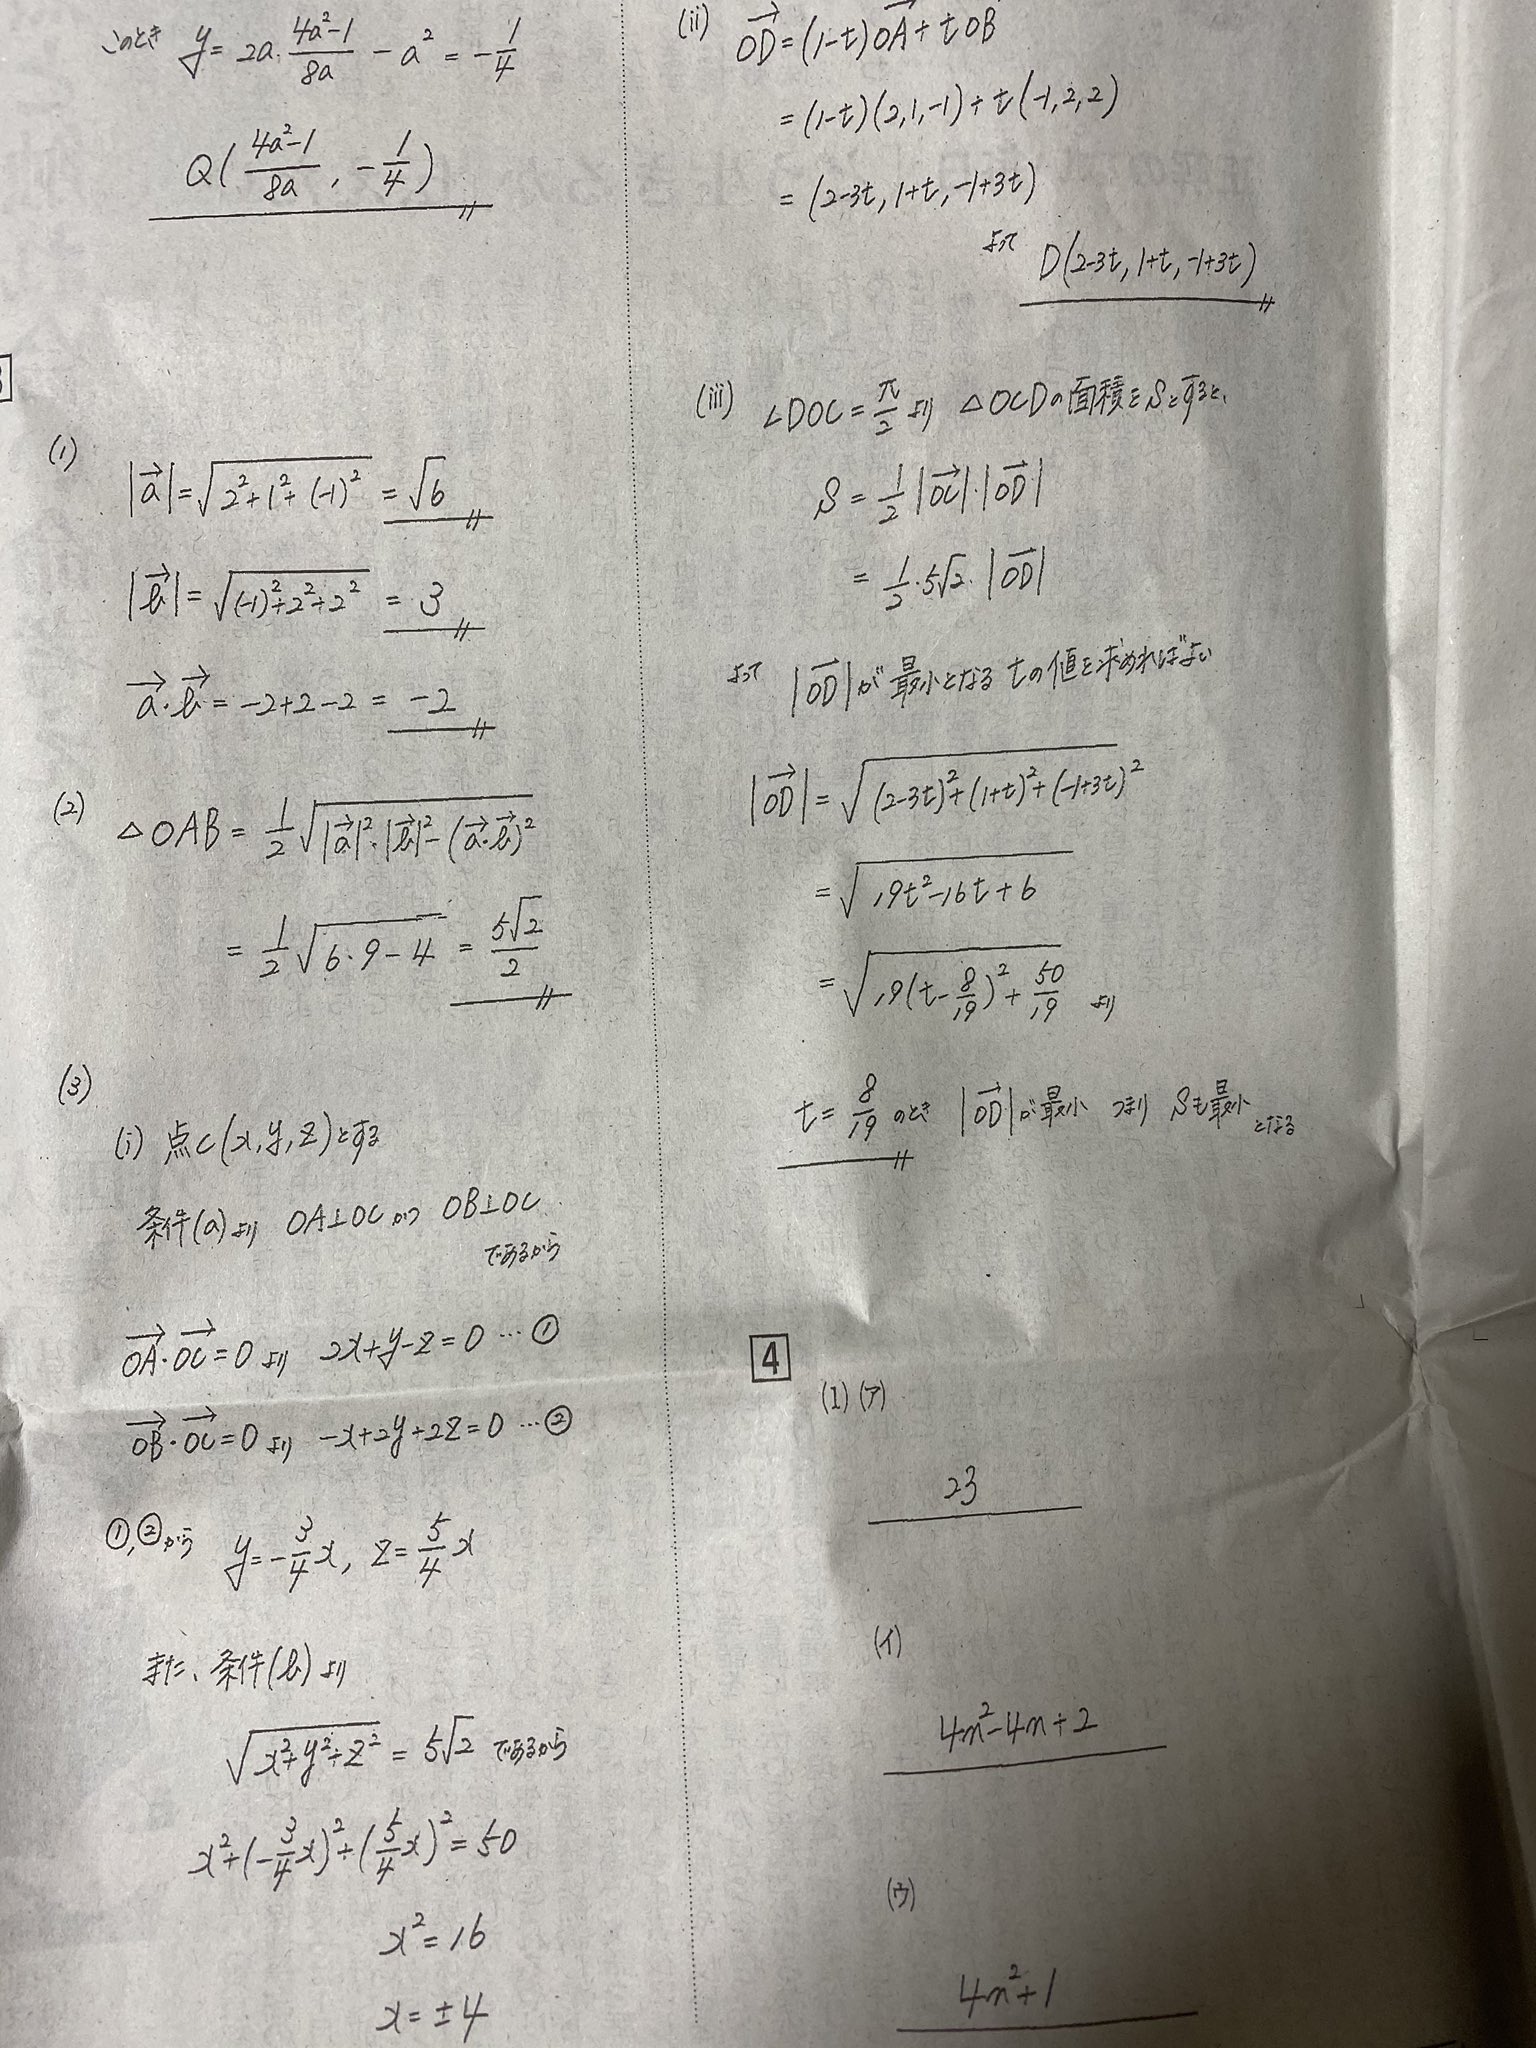 このとき y = 2a・(4a²-1)/(8a) - a² = -1/4
Q( (4a²-1)/(8a) , -1/4 )
(1)
|a→| = √(2²+1²+(-1)²) = √6
|b→| = √((-1)²+2²+2²) = 3
a→・b→ = -2+2-2 = -2
(2) △OAB = 1/2 √(|a→|²・|b→|²-(a→・b→)²)
= 1/2 √(6・9-4) = 5√2/2
(3)
(i) 点C(x,y,z)とする
条件(a)より OA⊥OC かつ OB⊥OC
であるから
OA→・OC→=0 より 2x+y-z=0 …①
OB→・OC→=0 より -x+2y+2z=0 …②
①,②から y=-3/4 x, z=5/4 x
また、条件(b)より
√(x²+y²+z²) = 5√2 であるから
x²+(-3/4 x)²+(5/4 x)² = 50
x²=16
x=±4
(ii) OD→=(1-t)OA→+tOB→
=(1-t)(2,1,-1)+t(-1,2,2)
=(2-3t, 1+t, -1+3t)
よって D(2-3t, 1+t, -1+3t)
(iii) ∠DOC=π/2 より △OCDの面積をSとすると、
S = 1/2 |OC→|・|OD→|
= 1/2・5√2・|OD→|
よって |OD→|が最小となる tの値を求めればよい
|OD→| = √((2-3t)²+(1+t)²+(-1+3t)²)
= √(19t²-16t+6)
= √(19(t-8/19)²+50/19) より
t=8/19 のとき |OD→|が最小 つまり Sも最小
となる
4
(I)(ア)
23
(イ)
4n²-4n+2
(ウ)
4n²+1